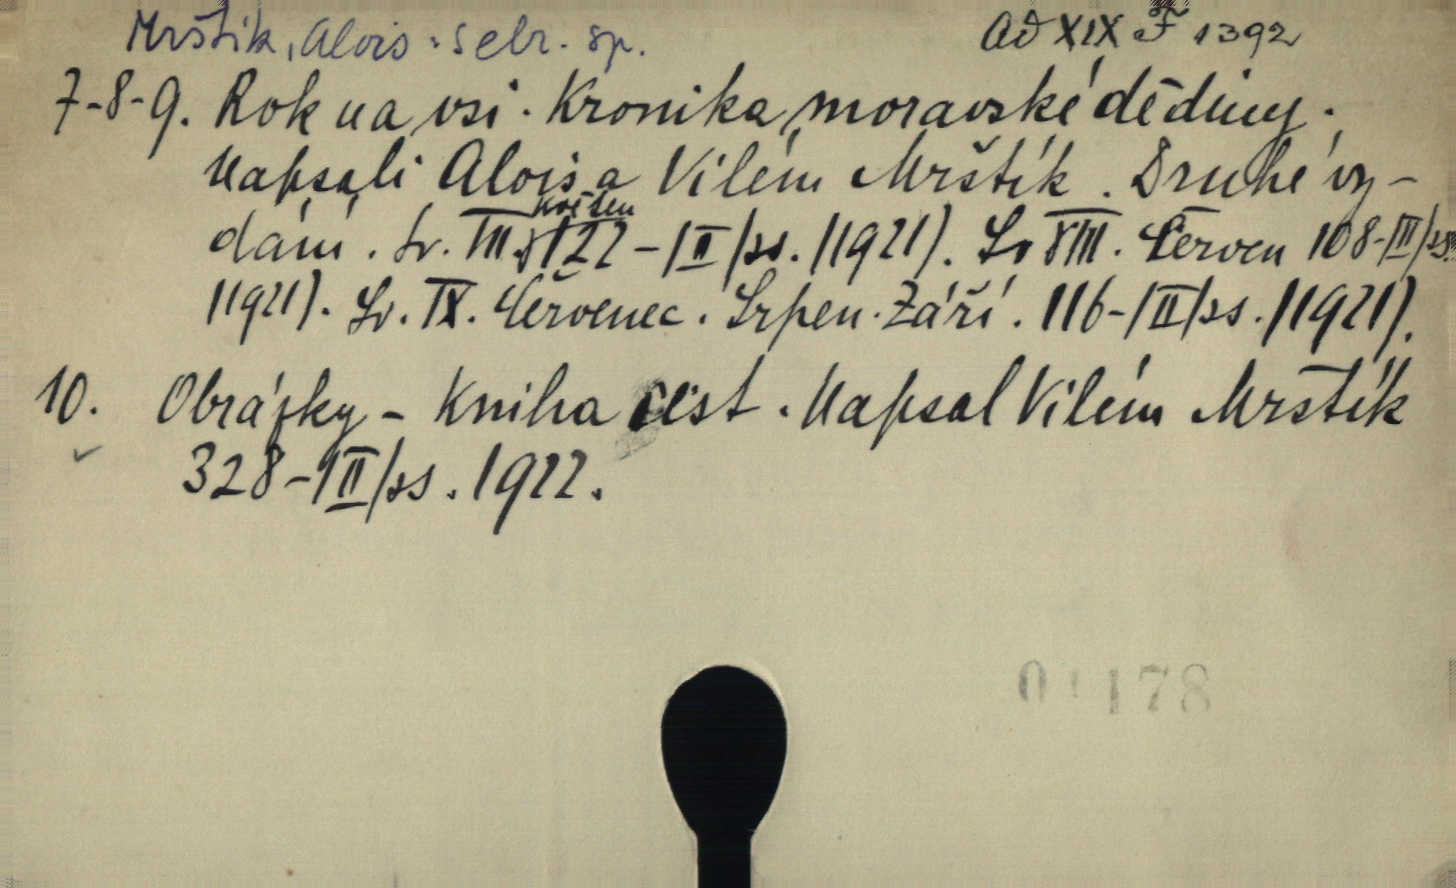 Mrštík, Alois: Sebr. sp. Ad XIX F 1392
7-8-9. Rok na vsi. Kronika moravské dědiny.
Napsali Alois a Vilém Mrštík. Druhé vy-
dání. Sv. VII. Květen 122-|II|ss. (1921). Sv VIII. Červen 108-III|ss.
(1921). Sv. IX. Červenec. Srpen. Září. 116-|II|ss. (1921).
10. Obrázky - Kniha cest. Napsal Vilém Mrštík
328-|II|ss. 1922.
01178